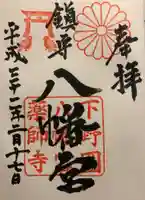 奉拝
鎮守
八幡宮
下野国
薬師寺
平成三十一年二月十七日